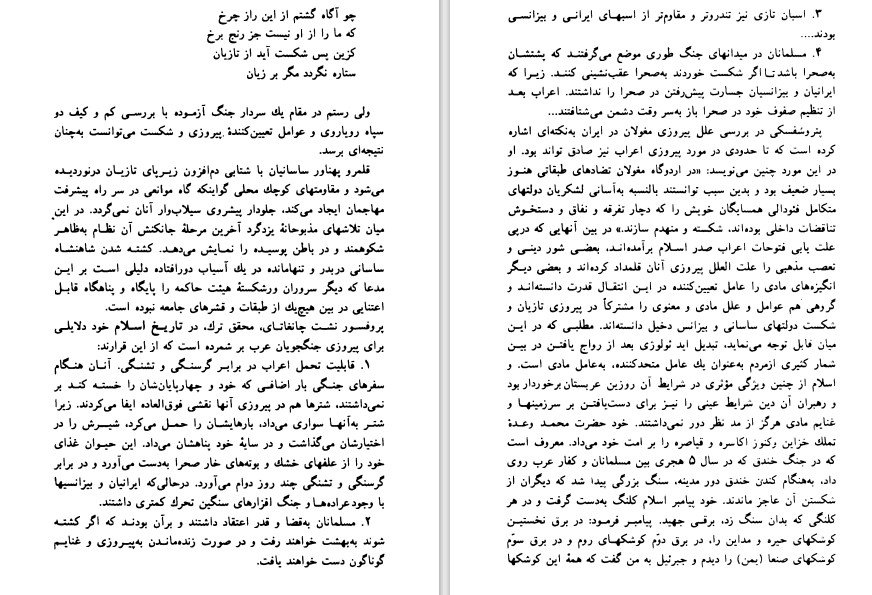 چو آگاه گشتم از این راز چرخ
که ما را از او نیست جز رنج برخ
کزین پس شکست آید از تازیان
ستاره نگردد مگر بر زیان
ولی رستم در مقام یك سردار جنگ آزموده با بررسی کم و کیف دو
سپاه رویاروی و عوامل تعیین‌کنندهٔ پیروزی و شکست می‌توانست به‌چنان
نتیجه‌ای برسد.
قلمرو پهناور ساسانیان با شتابی دم‌افزون زیرپای تازیان درنوردیده
می‌شود و مقاومتهای کوچك محلی گواینکه گاه موانعی در سر راه پیشرفت
مهاجمان ایجاد می‌کند، جلودار پیشروی سیلاب‌وار آنان نمی‌گردد. در این
میان تلاشهای مذبوحانهٔ یزدگرد آخرین مرحلهٔ جانکنش آن نظام به‌ظاهر
شکوهمند و در باطن پوسیده را نمایش می‌دهد. کشته شدن شاهنشاه
ساسانی دربدر و تنهامانده در یك آسیاب دورافتاده دلیلی است بر این
مدعا که دیگر سروران ورشکستهٔ هیئت حاکمه را پایگاه و پناهگاه قابل
اعتنایی در بین هیچ‌یك از طبقات و قشرهای جامعه نبوده است.
پروفسور نشت چانغاتای، محقق ترك، در تاریخ اسلام خود دلایلی
برای پیروزی جنگجویان عرب بر شمرده است که از این قرارند:
۱. قابلیت تحمل اعراب در برابر گرسنگی و تشنگی. آنان هنگام
سفرهای جنگی بار اضافی که خود و چهارپایان‌شان را خسته کند بر
نمی‌داشتند، شترها هم در پیروزی آنها نقشی فوق‌العاده ایفا می‌کردند. زیرا
شتر به‌آنها سواری می‌داد، بارهایشان را حمل می‌کرد، شیرش را در
اختیارشان می‌گذاشت و در سایهٔ خود پناهشان می‌داد. این حیوان غذای
خود را از علفهای خشك و بوته‌های خار صحرا به‌دست می‌آورد و در برابر
گرسنگی و تشنگی چند روز دوام می‌آورد. درحالی‌که ایرانیان و بیزانسیها
با وجود عراده‌ها و جنگ افزارهای سنگین تحرك کمتری داشتند.
۲. مسلمانان به‌قضا و قدر اعتقاد داشتند و برآن بودند که اگر کشته
شوند به‌بهشت خواهند رفت و در صورت زنده‌ماندن به‌پیروزی و غنایم
گوناگون دست خواهند یافت.
۳. اسبان تازی نیز تندروتر و مقاوم‌تر از اسبهای ایرانی و بیزانسی
بودند....
۴. مسلمانان در میدانهای جنگ طوری موضع می‌گرفتند که پشتشان
به‌صحرا باشد تا اگر شکست خوردند به‌صحرا عقب‌نشینی کنند. زیرا که
ایرانیان و بیزانسیان جسارت پیش‌رفتن در صحرا را نداشتند. اعراب بعد
از تنظیم صفوف خود در صحرا باز به‌سر وقت دشمن می‌شتافتند...
پتروشفسکی در بررسی علل پیروزی مغولان در ایران به‌نکته‌ای اشاره
کرده است که تا حدودی در مورد پیروزی اعراب نیز صادق تواند بود. او
در این مورد چنین می‌نویسد: «در اردوگاه مغولان تضادهای طبقاتی هنوز
بسیار ضعیف بود و بدین سبب توانستند بالنسبه به‌آسانی لشکریان دولتهای
متکامل فئودالی همسایگان خویش را که دچار تفرقه و نفاق و دستخوش
تناقضات داخلی بوده‌اند، شکسته و منهدم سازند.» در بین آنهایی که درپی
علت یابی فتوحات اعراب صدر اسلام برآمده‌اند، بعضی شور دینی و
تعصب مذهبی را علت العلل پیروزی آنان قلمداد کرده‌اند و بعضی دیگر
انگیزه‌های مادی را عامل تعیین‌کننده در این انتقال قدرت دانسته‌اند و
گروهی هم عوامل و علل مادی و معنوی را مشترکاً در پیروزی تازیان و
شکست دولتهای ساسانی و بیزانس دخیل دانسته‌اند. مطلبی که در این
میان قابل توجه می‌نماید، تبدیل اید ئولوژی بعد از رواج یافتن در بین
شمار کثیری ازمردم به‌عنوان یك عامل متحدکننده، به‌عامل مادی است. و
اسلام از چنین ویژگی مؤثری در شرایط آن روزین عربستان برخوردار بود
و رهبران آن دین شرایط عینی را نیز برای دست‌یافتن بر سرزمینها و
غنایم مادی هرگز از مد نظر دور نمی‌داشتند. خود حضرت محمد وعدهٔ
تملك خزاین وکنوز اکاسره و قیاصره را بر امت خود می‌داد. معروف است
که در جنگ خندق که در سال ۵ هجری بین مسلمانان و کفار عرب روی
داد، به‌هنگام کندن خندق دور مدینه، سنگ بزرگی پیدا شد که دیگران از
شکستن آن عاجز ماندند. خود پیامبر اسلام کلنگ به‌دست گرفت و در هر
کلنگی که بدان سنگ زد، برقی جهید. پیامبر فرمود: در برق نخستین
کوشکهای حیره و مداین را، در برق دوّم کوشکهای روم و در برق سوّم
کوشکهای صنعا (یمن) را دیدم و جبرئیل به من گفت که همهٔ این کوشکها